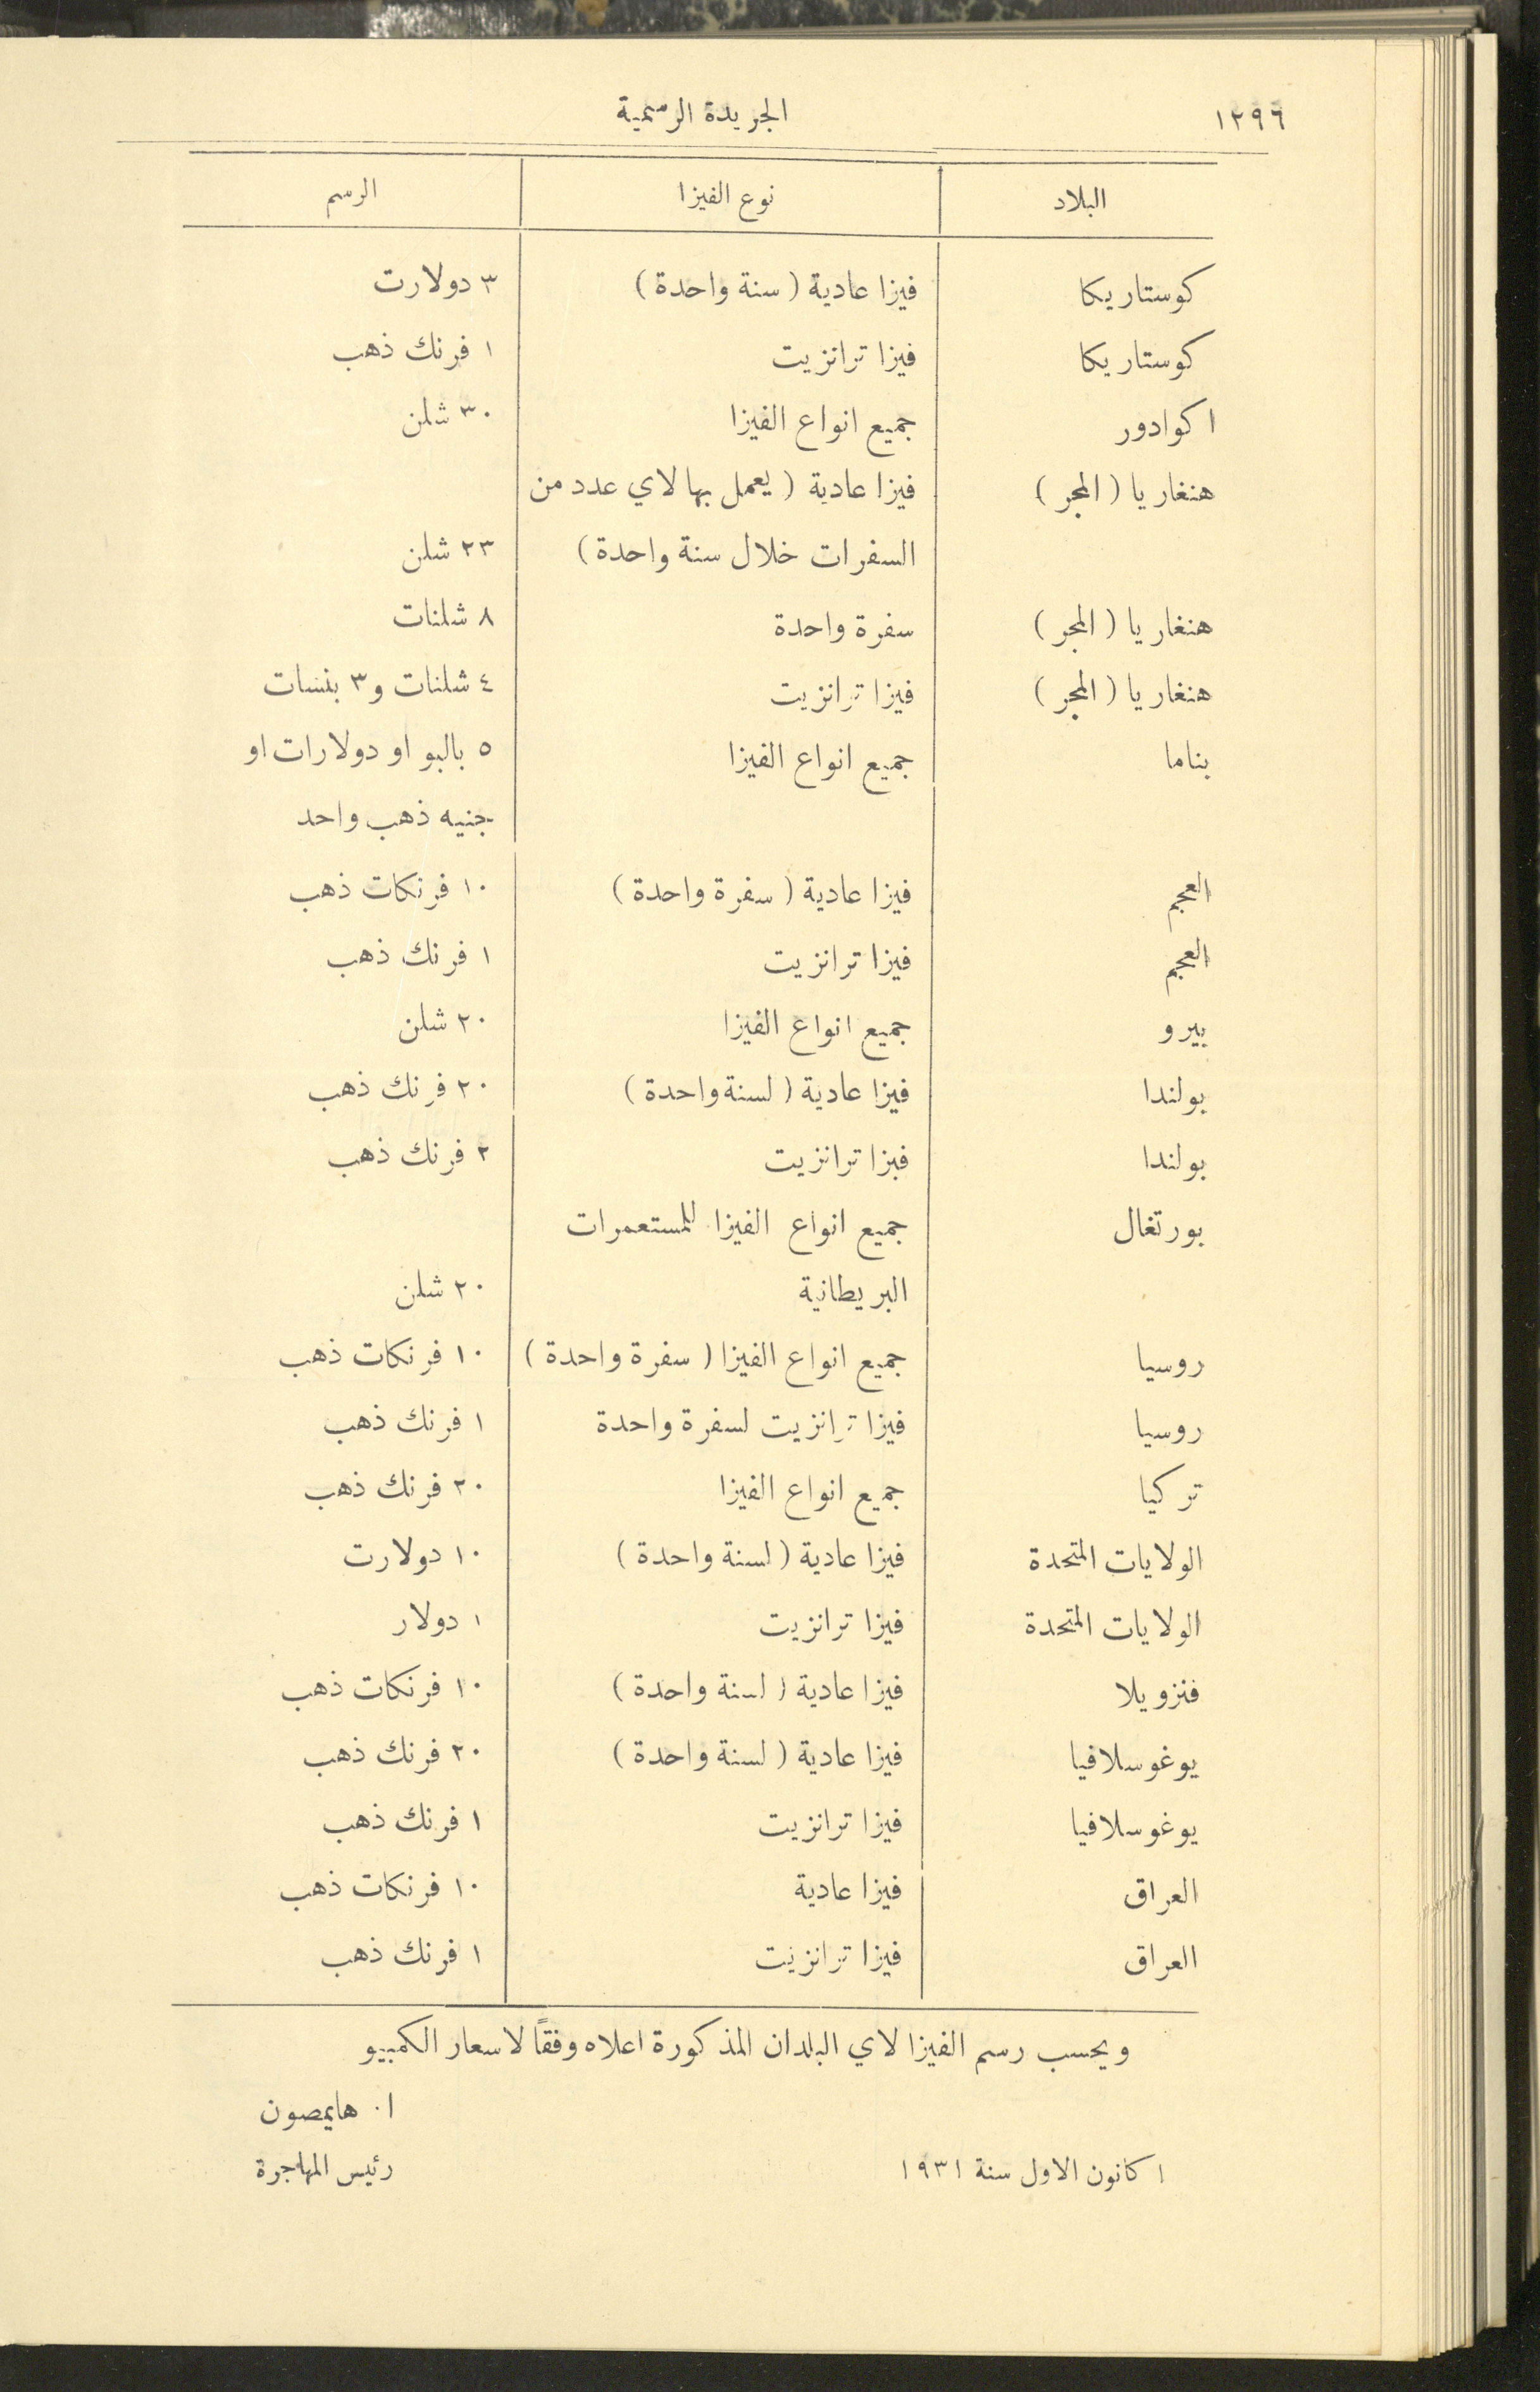 ١٢٩٦ الجريدة الرسمية
البلاد نوع الفيزا الرسم
كوستاريكا فيزا عادية (سنة واحدة) ٣ دولارت
كوستاريكا فيزا ترانزيت ١ فرنك ذهب
اكوادور جميع انواع الفيزا ٣٠ شلن
هنغاريا (المجر) فيزا عادية (يعمل بها لاي عدد من
السفرات خلال سنة واحدة) ٢٣ شلن
هنغاريا (المجر) سفرة واحدة ٨ شلنات
هنغاريا (المجر) فيزا ترانزيت ٤ شلنات و٣ بنسات
بناما جميع انواع الفيزا ٥ بالبو او دولارات او
جنيه ذهب واحد
العجم فيزا عادية (سفرة واحدة) ١٠ فرنكات ذهب
العجم فيزا ترانزيت ١ فرنك ذهب
بيرو جميع انواع الفيزا ٢٠ شلن
بولندا فيزا عادية (لسنة واحدة) ٢٠ فرنك ذهب
بولندا فيزا ترانزيت ٢ فرنك ذهب
بورتغال جميع انواع الفيزا للمستعمرات
البريطانية ٢٠ شلن
روسيا جميع انواع الفيزا (سفرة واحدة) ١٠ فرنكات ذهب
روسيا فيزا ترانزيت لسفرة واحدة ١ فرنك ذهب
تركيا جميع انواع الفيزا ٢٠ فرنك ذهب
الولايات المتحدة فيزا عادية (لسنة واحدة) ١٠ دولارت
الولايات المتحدة فيزا ترانزيت ١ دولار
فنزويلا فيزا عادية (لسنة واحدة) ١٠ فرنكات ذهب
يوغوسلافيا فيزا عادية (لسنة واحدة) ٢٠ فرنك ذهب
يوغوسلافيا فيزا ترانزيت ١ فرنك ذهب
العراق فيزا عادية ١٠ فرنكات ذهب
العراق فيزا ترانزيت ١ فرنك ذهب
ويحسب رسم الفيزا لاي البلدان المذكورة اعلاه وفقاً لاسعار الكمبيو
ا. هايمصون
١ كانون الاول سنة ١٩٣١ رئيس المهاجرة